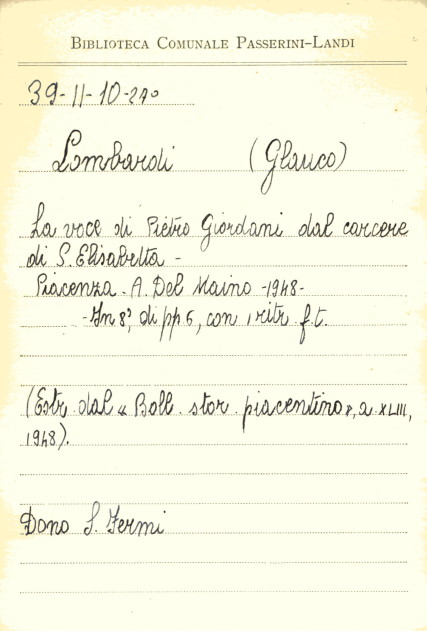 BIBLIOTECA COMUNALE PASSERINI-LANDI
39-11-10-24º
Lombardi (Glauco)
La voce di Pietro Giordani dal carcere
di S. Elisabetta -
Piacenza. A. Del Maino -1948-
-In 8º, di pp 6, con 1 ritr f.t.
(Estr. dal « Boll. stor. piacentino », a. XLIII,
1948).
Dono S. Fermi